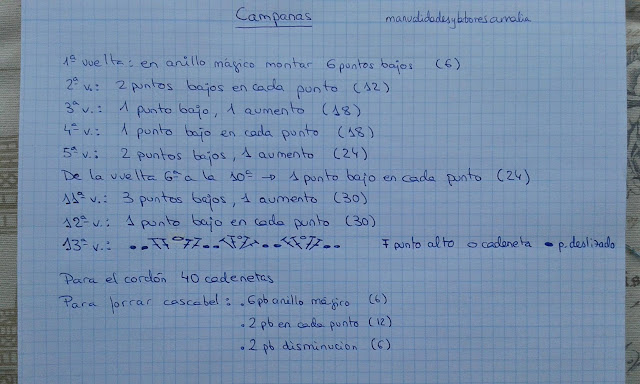 Campanas manualidadesylaboresamalia
1ª vuelta: en anillo mágico montar 6 puntos bajos (6)
2ª v.: 2 puntos bajos en cada punto (12)
3ª v.: 1 punto bajo, 1 aumento (18)
4ª v.: 1 punto bajo en cada punto (18)
5ª v.: 2 puntos bajos, 1 aumento (24)
De la vuelta 6ª a la 10ª → 1 punto bajo en cada punto (24)
11ª v.: 3 puntos bajos, 1 aumento (30)
12ª v.: 1 punto bajo en cada punto (30)
13ª v.: punto alto o cadeneta • p. deslizado
Para el cordón 40 cadenetas
Para forrar cascabel: . 6pb anillo mágico (6)
. 2 pb en cada punto (12)
. 2 pb disminucion (6)